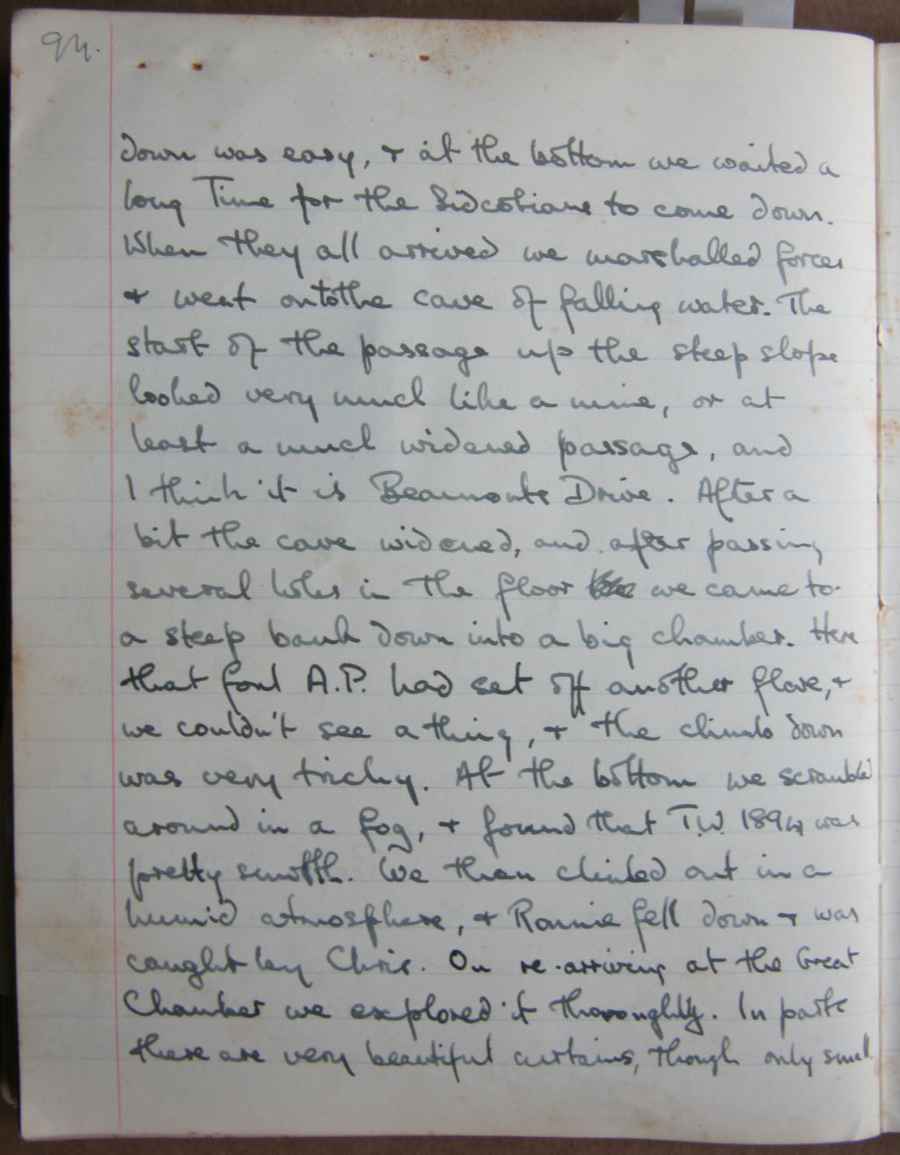 94.
down was easy, & at the bottom we waited a
long Time for the Sidcotians to come down.
When they all arrived we marshalled forces
& went onto the cave of falling water. The
start of the passage up the steep slope
looked very much like a mine, or at
least a much widened passage, and
I think it is Beaumonts Drive. After a
bit the cave widened, and after passing
several holes in the floor we came to
a steep bank down into a big chamber. Here
that foul A.P. had set off another flare, &
we couldn't see a thing, & the climb down
was very tricky. At the bottom we scrambled
around in a fog, & found that T.W. 1894 was
pretty smooth. We then climbed out in a
humid atmosphere, & Ronnie fell down & was
caught by Chris. On re-arriving at the Great
Chamber we explored it thoroughly. In parts
there are very beautiful curtains, though only small